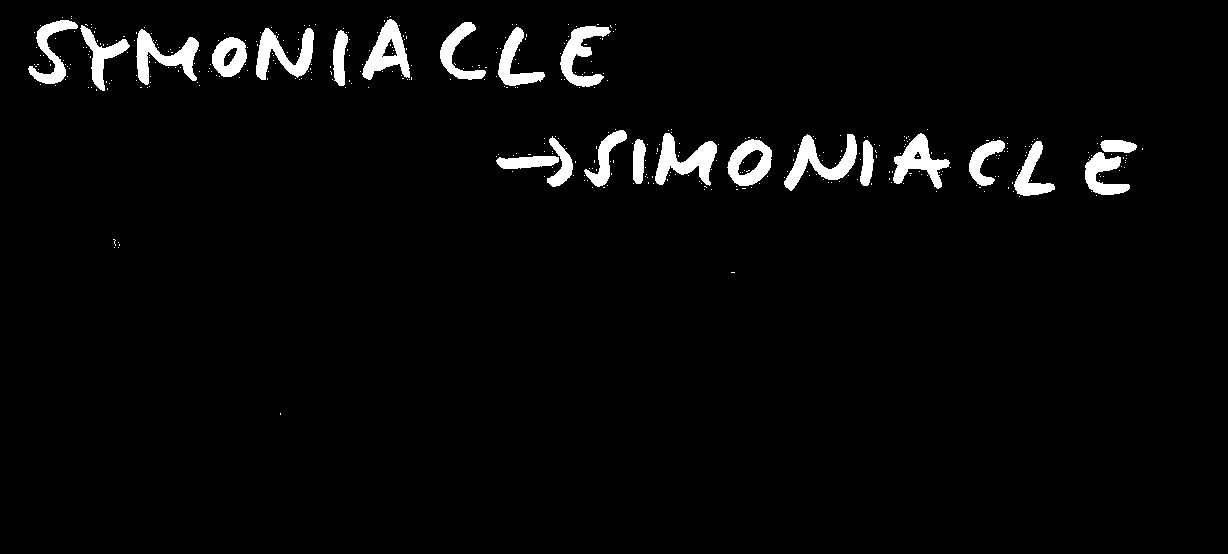 SYMONIACLE
→SIMONIACLE